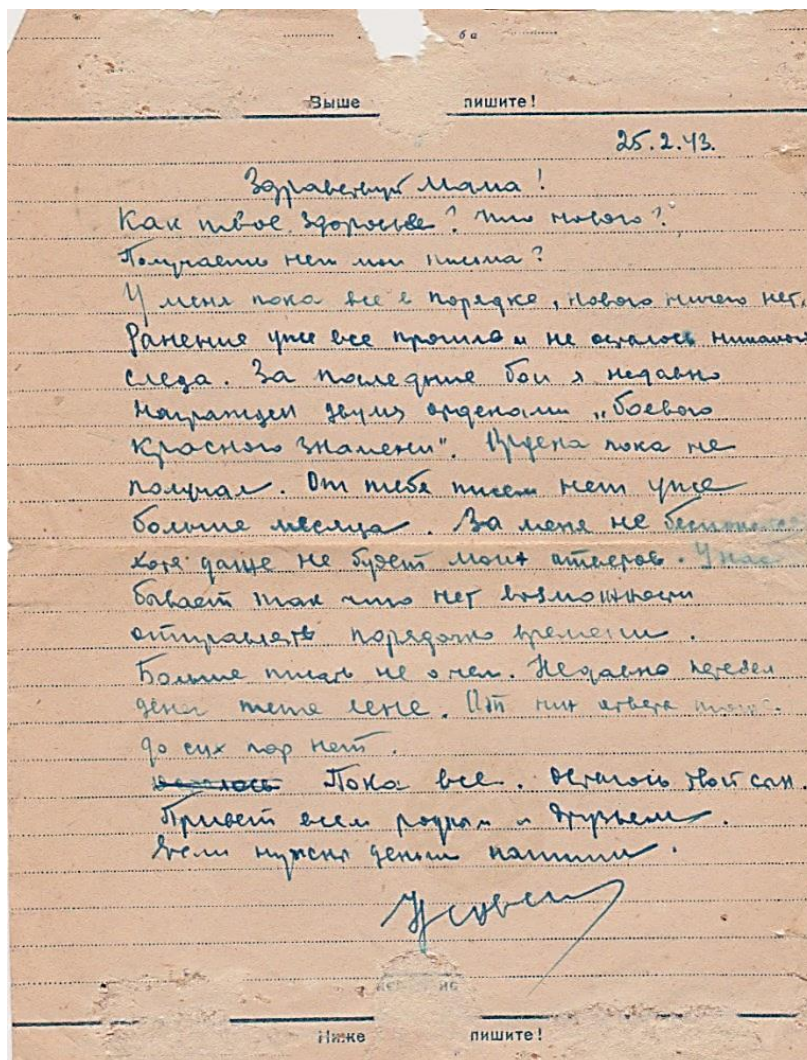 Выше пишите!
25.2.43.
Здравствуй Мама!
Как твое здоровье? Что нового?
Получаешь нет мои письма?
У меня пока все в порядке, нового ничего нет.
Ранение уже все прошло и не осталось никакого
следа. За последние бои я недавно
награжден двумя орденами „боевого
красного знамени". Ордена пока не
получал. От тебя писем нет уже
больше месяца. За меня не беспокойся
хотя даже не будет моих ответов. У нас
бывает так что нет возможности
отправлять порядочно времени.
Больше писать не о чем. Недавно перевел
денег тете Лене. От них ответа тоже
до сих пор нет.
Пока все. Остаюсь твой сын.
Привет всем родным и друзьям.
Если нужны деньги напиши.
Ниже пишите!